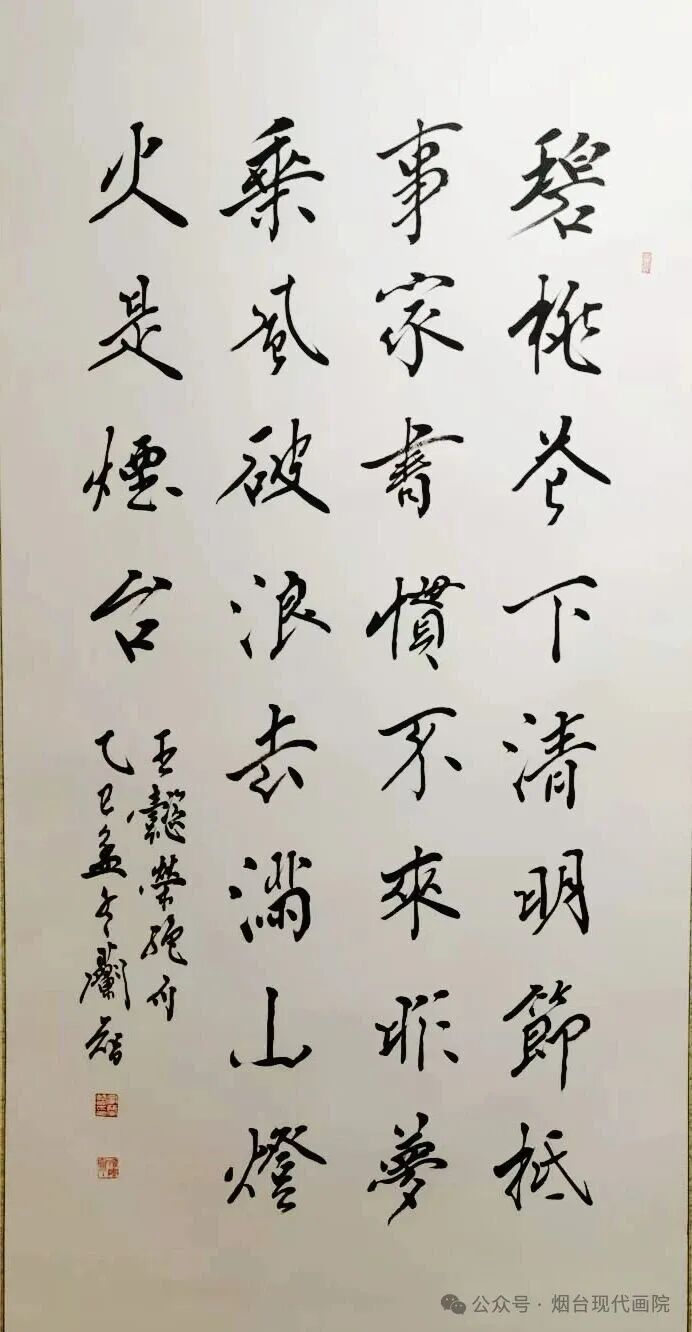 碧桃花下清明節柢
事家書慣不來昨夢
乘風破浪去滿山燈
火是煙台
王懿榮絕句
乙巳孟冬蘭智
公众号·烟台现代画院